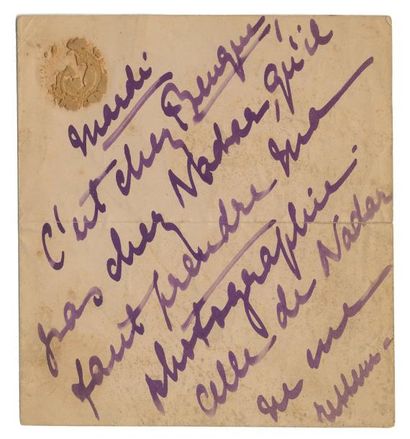 Mardi.
C'est chez Benque,
pas chez Nadar, qu'il
faut prendre ma
photographie.
Celle de Nadar
ne me
ressem-